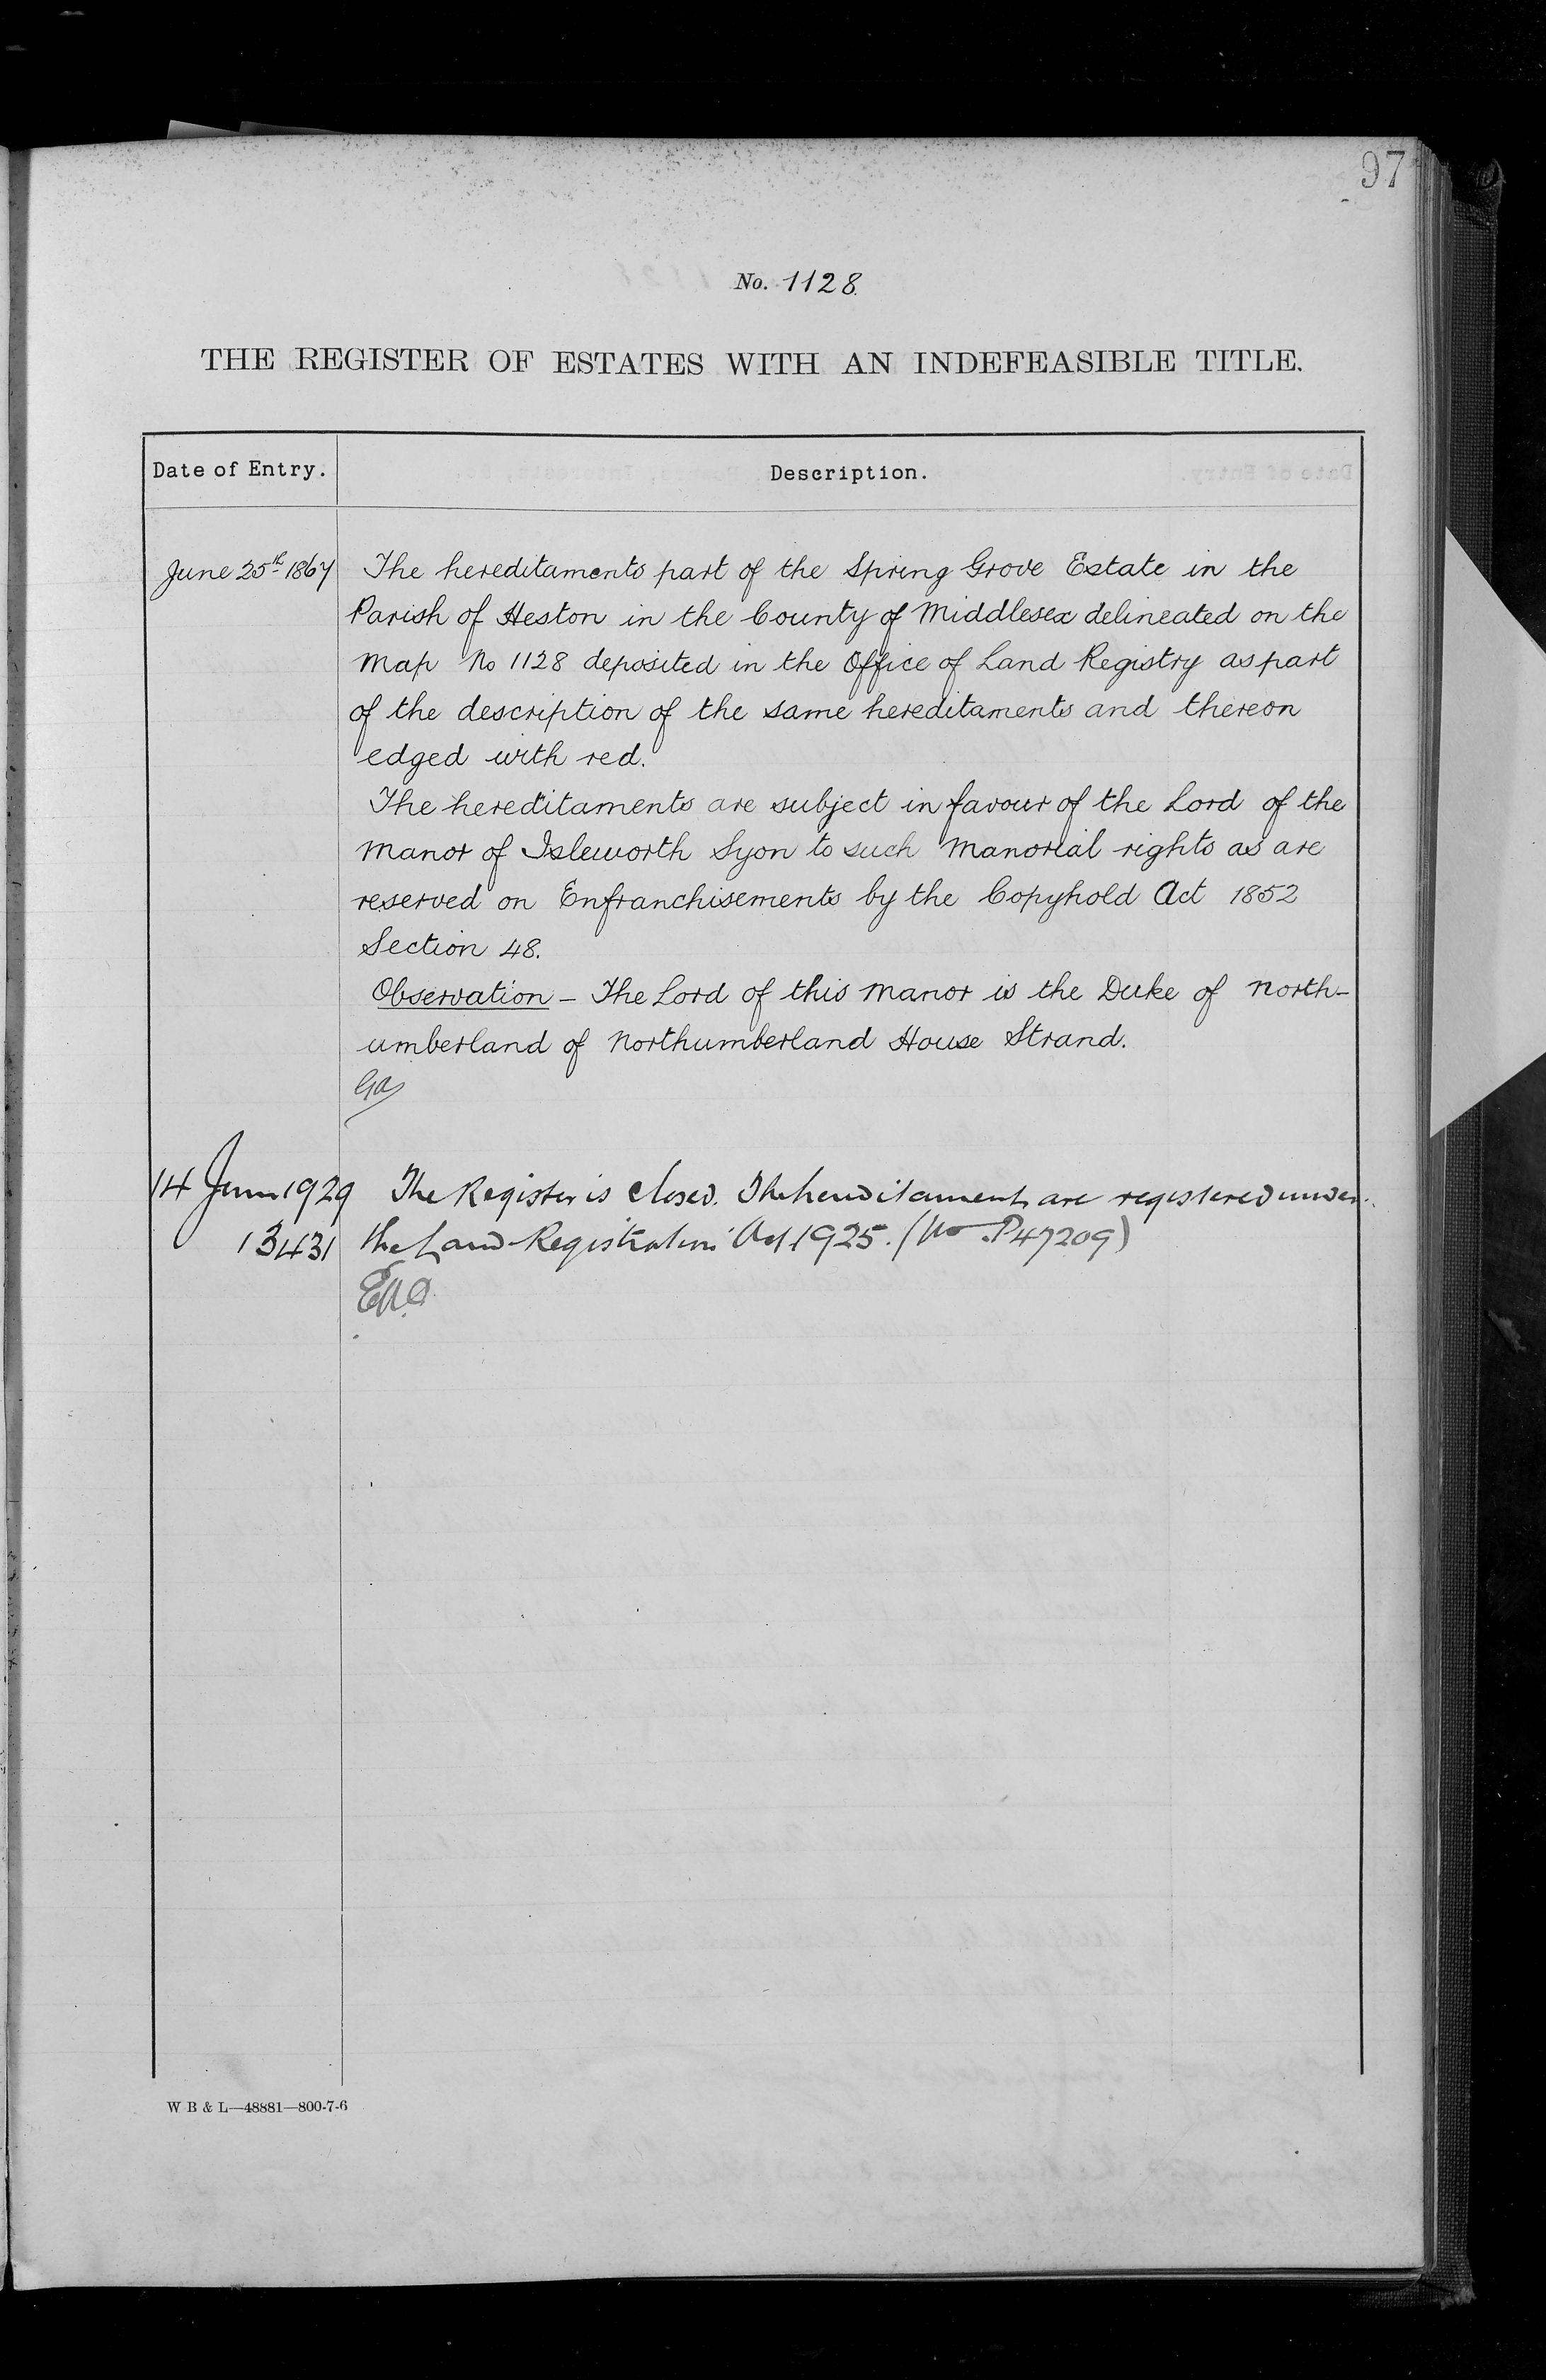 97
No. 1128.
THE REGISTER OF ESTATES WITH AN INDEFEASIBLE TITLE.
Date of Entry. Description.
June 25th 1867 The hereditaments part of the Spring Grove Estate in the
Parish of Heston in the County of Middlesex delineated on the
Map No 1128 deposited in the Office of Land Registry as part
of the description of the same hereditaments and thereon
edged with red.
The hereditaments are subject in favour of the Lord of the
Manor of Isleworth Syon to such Manorial rights as are
reserved on Enfranchisements by the Copyhold Act 1852
Section 48.
Observation – The Lord of this Manor is the Duke of North-
umberland of Northumberland House Strand.
14 June 1929 The Register is closed. The hereditaments are registered under
13431 the Land Registration Act 1925. (No P47209)
W B & L—48881—800-7-6